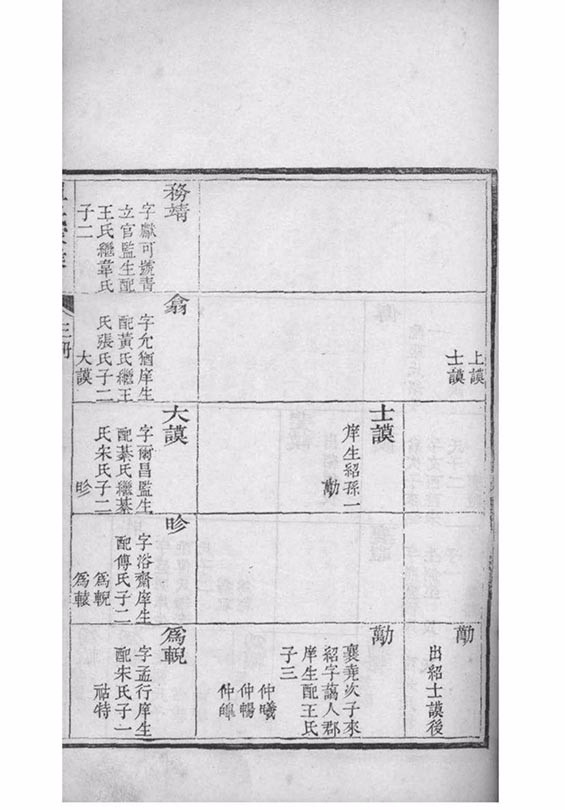 務靖
字獻可號青
立官監生配
王氏繼韋氏
子二
上謨
士謨
翕
字允猶庠生
配黃氏繼王
氏張氏子二
大謨
士謨
庠生紹孫一
勱
大謨
字爾昌監生
配綦氏繼綦
氏宋氏子二
昣
昣
字浴齋庠生
配傅氏子二
爲輗
爲轅
勱
出紹士謨後
勱
襄堯次子來
紹字藹人郡
庠生配王氏
子三
仲曦
仲暘
仲皥
爲輗
字孟行庠生
配朱氏子一
祜特